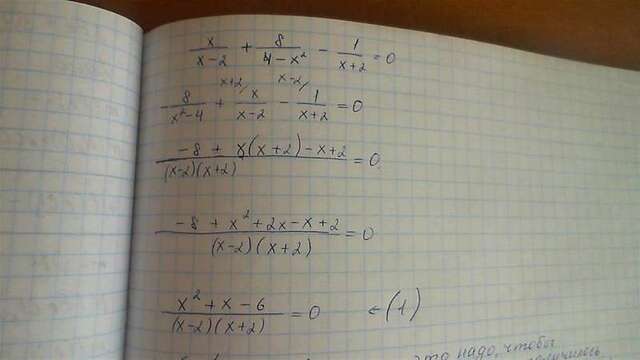 x/(x-2) + 8/(4-x²) - 1/(x+2) = 0
x+2/ x-2/
-8/(x²-4) + x/(x-2) - 1/(x+2) = 0
(-8 + x(x+2) - x+2)/((x-2)(x+2)) = 0
(-8 + x² + 2x - x + 2)/((x-2)(x+2)) = 0
(x² + x - 6)/((x-2)(x+2)) = 0 ← (1)
это надо, чтобы